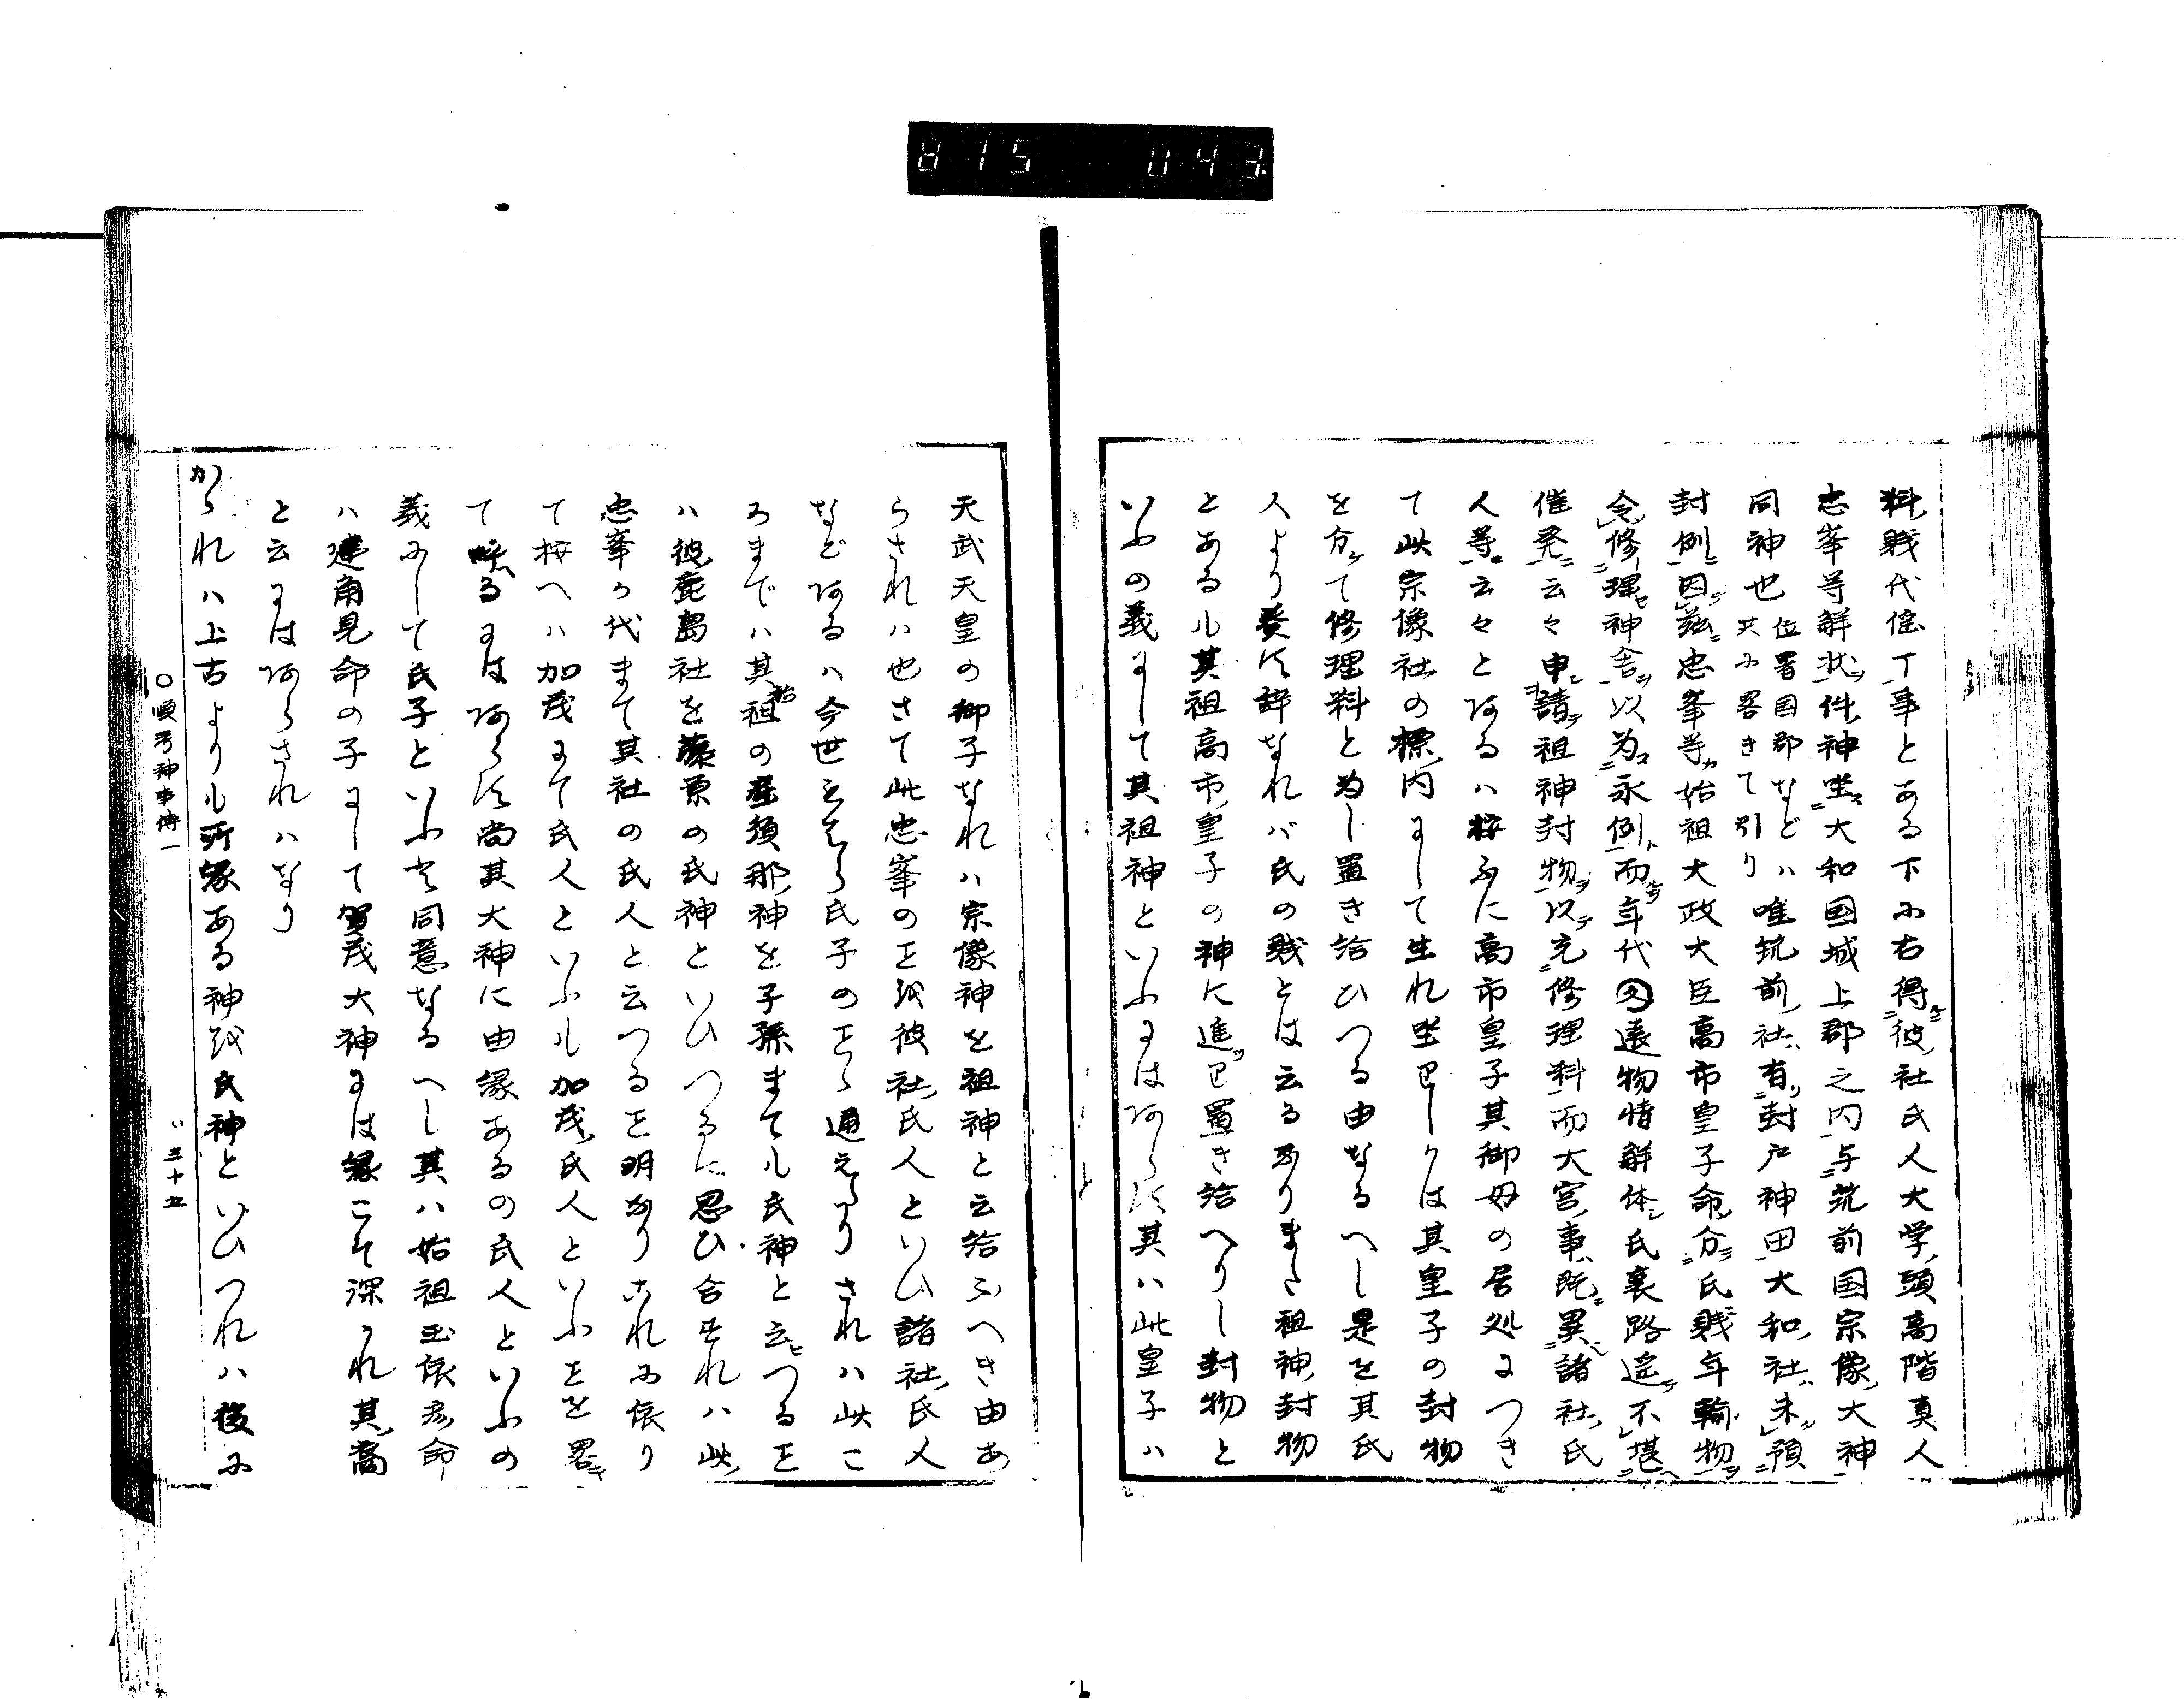 815 043
料賤代傜丁事とある下に右得彼社氏人大学頭高階真人
忠峯等解状件神坐大和国城上郡之内与筑前国宗像大神
同神也 位署国郡などハ共に畧きて引り 唯筑前社有封戸神田大和社未預
封例因茲忠峯等始祖太政大臣高市皇子命分氏賤年輸物
令修理神舎以為永例而年代遠物情解体氏衰路遥不堪
催発云々申請祖神封物以充修理料而大宮事既異諸社氏
人等云々とあるハ按ふに高市皇子其御母の居処につき
て此宗像社の標内にして生れ坐しかは其皇子の封物
を分て修理料と為し置き給ひつる由なるへし是を其氏
人より賤なれバ氏の賤とは云るなりまた祖神封物
とあるも其祖高市皇子の神に進り置き給へりし封物と
いふの義にして其祖神といふにはあらす其ハ此皇子ハ
天武天皇の御子なれハ宗像神を祖神と云給ふへき由あ
らされハ也さて此忠峯のを彼社氏人といひ諸社氏人
などあるハ今世にも氏子の通えたりされハ此こ
ろまでハ其始祖の産須那神を子孫まても氏神と云つるを
ハ彼鹿島社を藤原の氏神といひつるに思ひ合すれハ此
忠峯か代まて其社の氏人と云つるを明なりこれに依り
て按へハ加茂にて氏人といふも加茂氏人といふを畧き
て呼るにはあらす尚其大神に由縁あるの氏人といふの
義にして氏子といふと同意なるへし其ハ始祖玉依彦命
ハ建角見命の子にして賀茂大神には縁こそ深かれ其裔
と云にはあらされハなり
かゝれハ上古よりも所縁ある神を氏神といひつれハ後に
〇順考神事傳一
三十五